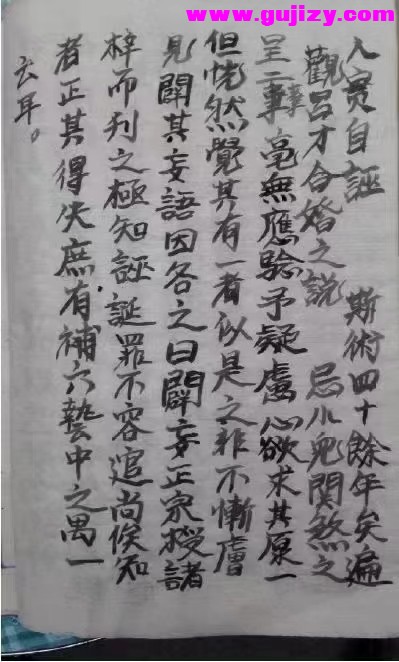 www.gujizy.com
人實自誣 斯術四十餘年矣遍
觀呂才合婚之説 忌小兒関煞之
呈二事毫無應驗予疑慮心欲求其原一
但恍然覺其有一者似是之非不慚膚
見闢其妄語因各之曰闢妄正宗授諸
梓而刋之極知誣誕罪不容逭尚俟知
者正其得失庶有補六藝中之禺一
云耳。